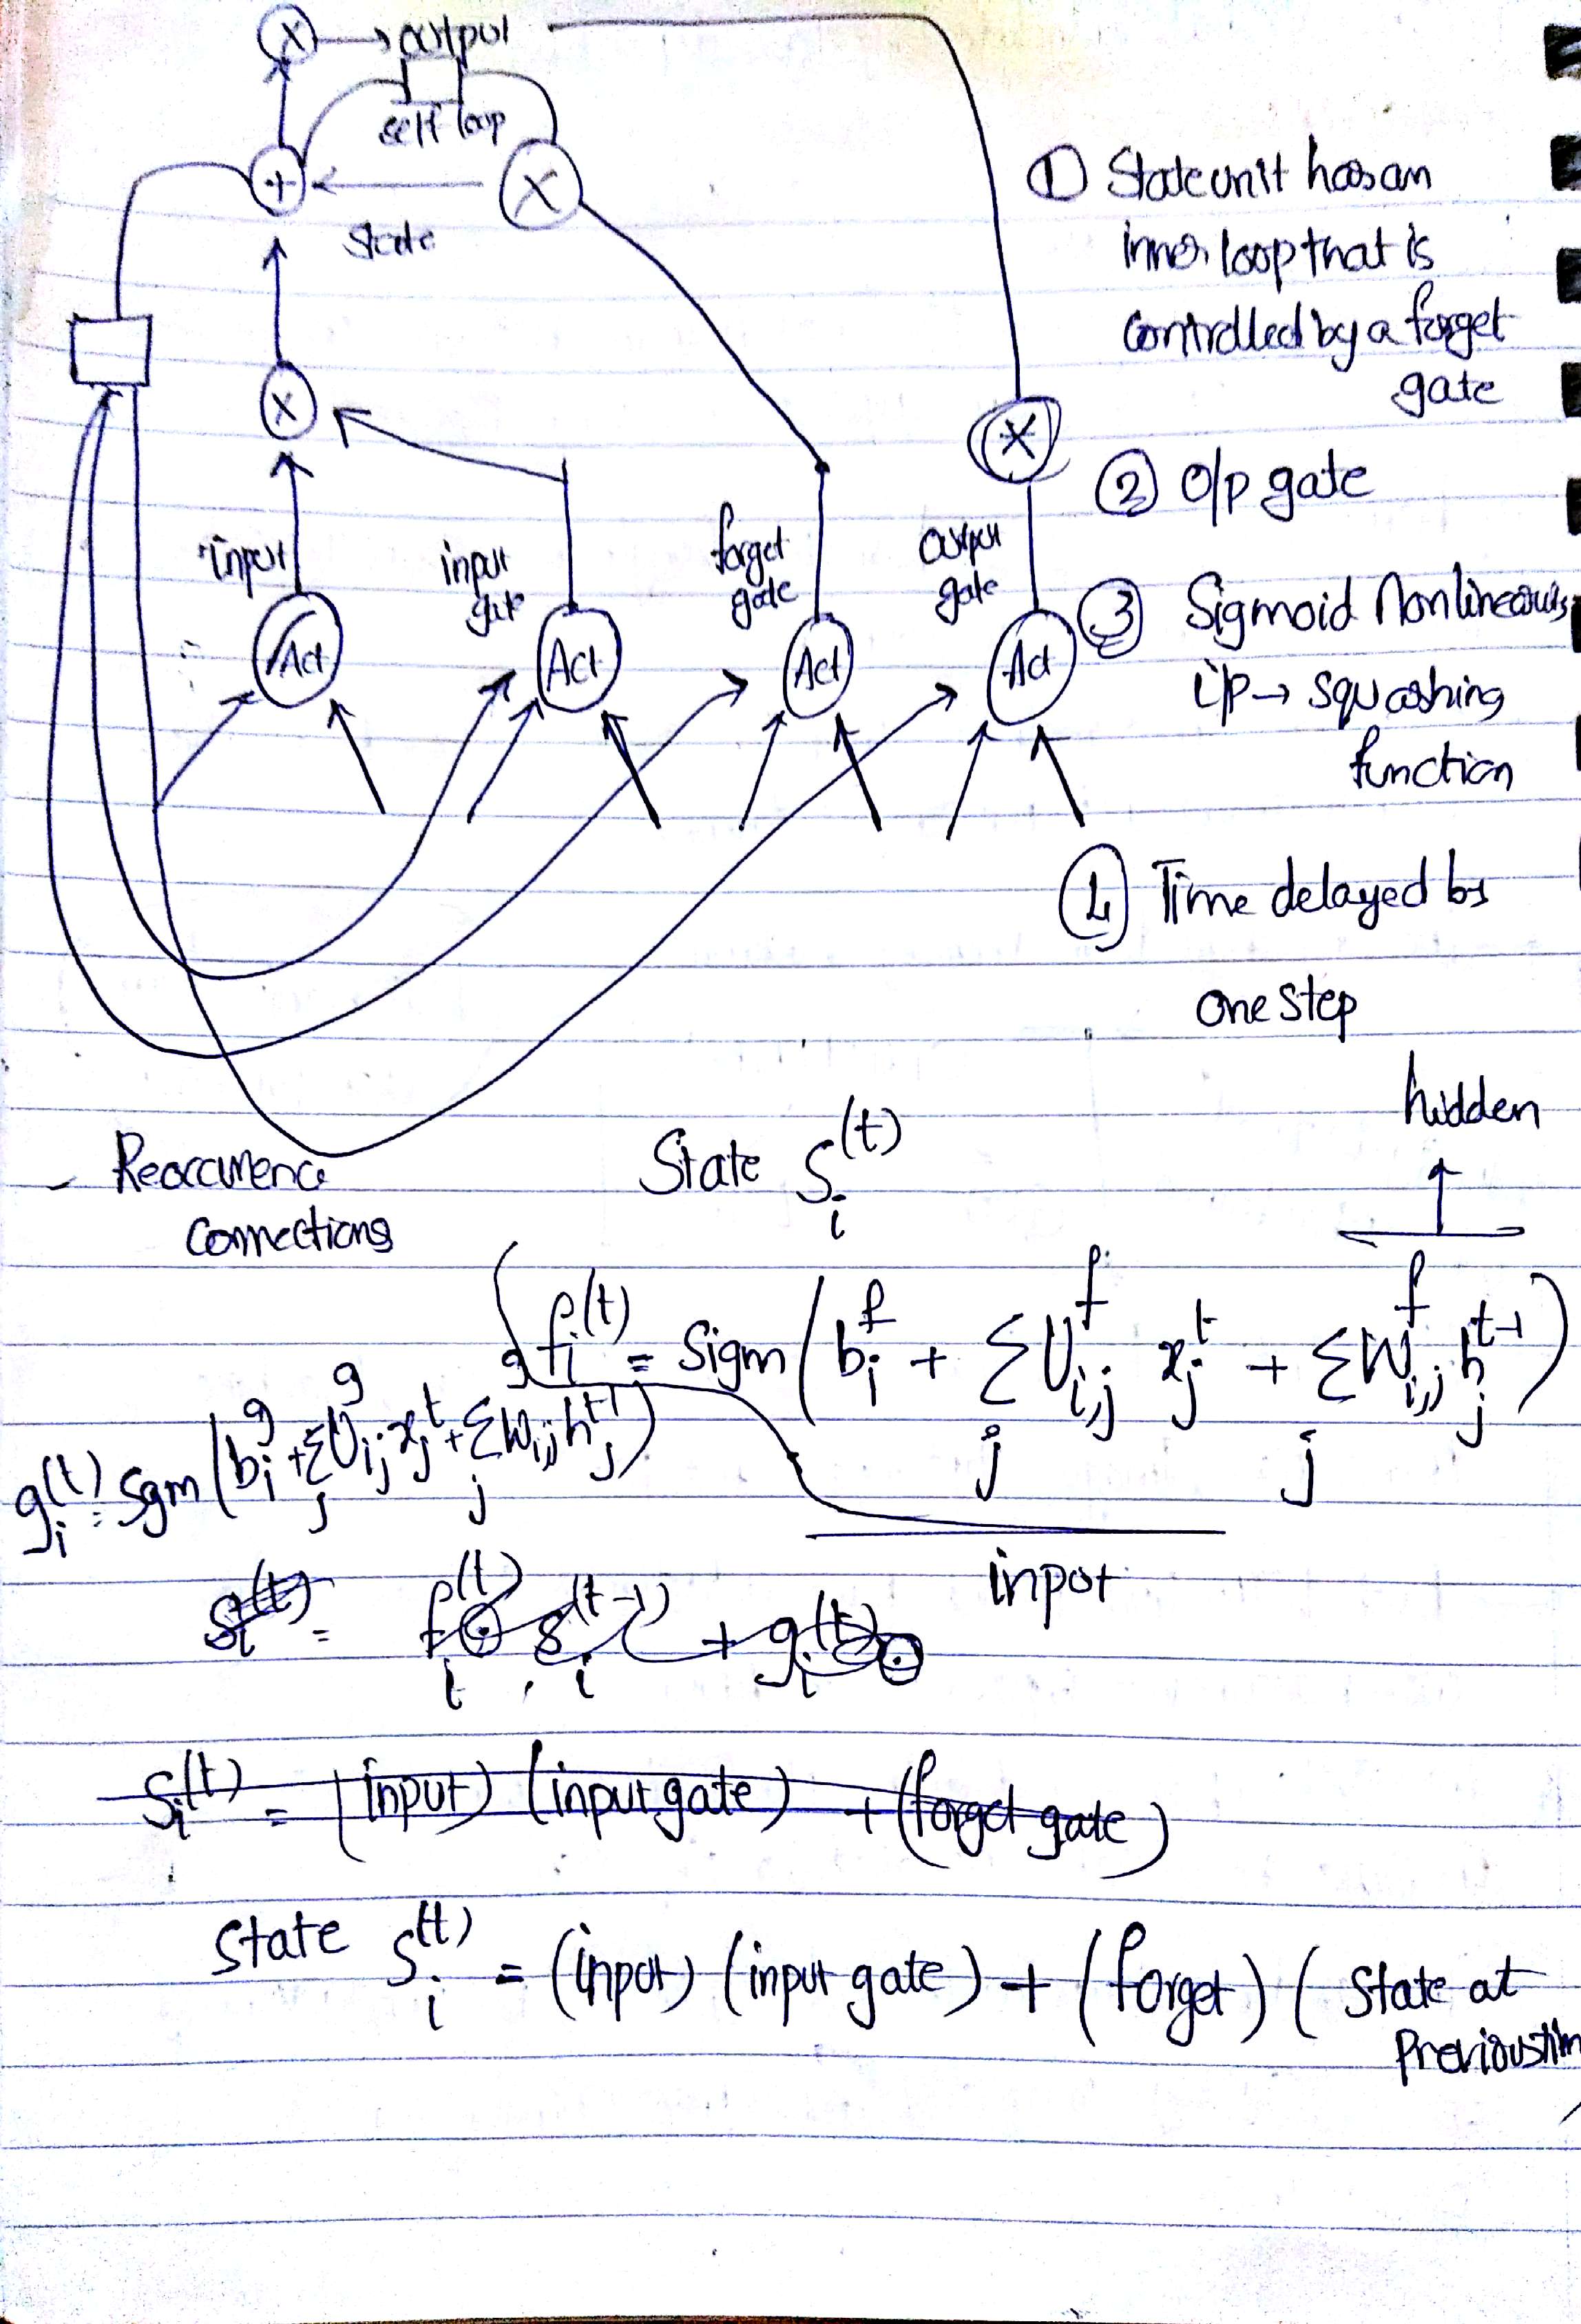 (X) → output
self loop
(+) (X)
State
(X)
(X)
input
input gate
forget gate
output gate
Act Act Act Act
① State unit has an
inner loop that is
controlled by a forget
gate
② O/p gate
③ Sigmoid Nonlinear
i/p → squashing
function
④ Time delayed by
one step
hidden
- Reoccurence
connections
State S_i^(t)
f_i^(t) = Sigm (b_i^f + Σ_j U_{i,j}^f x_j^t + Σ_j W_{i,j}^f h_j^{t-1})
g_i^(t) = Sgm (b_i^g + Σ_j U_{ij}^g x_j^t + Σ_j W_{i,j} h_j^{t-1})
input
S_i^(t) = f_i^(t) ⊙ s_i^(t-1) + g_i^(t) ⊙
S_i^(t) = (input) (input gate) + (forget gate)
State S_i^(t) = (input) (input gate) + (forget) ( State at
Previous tim